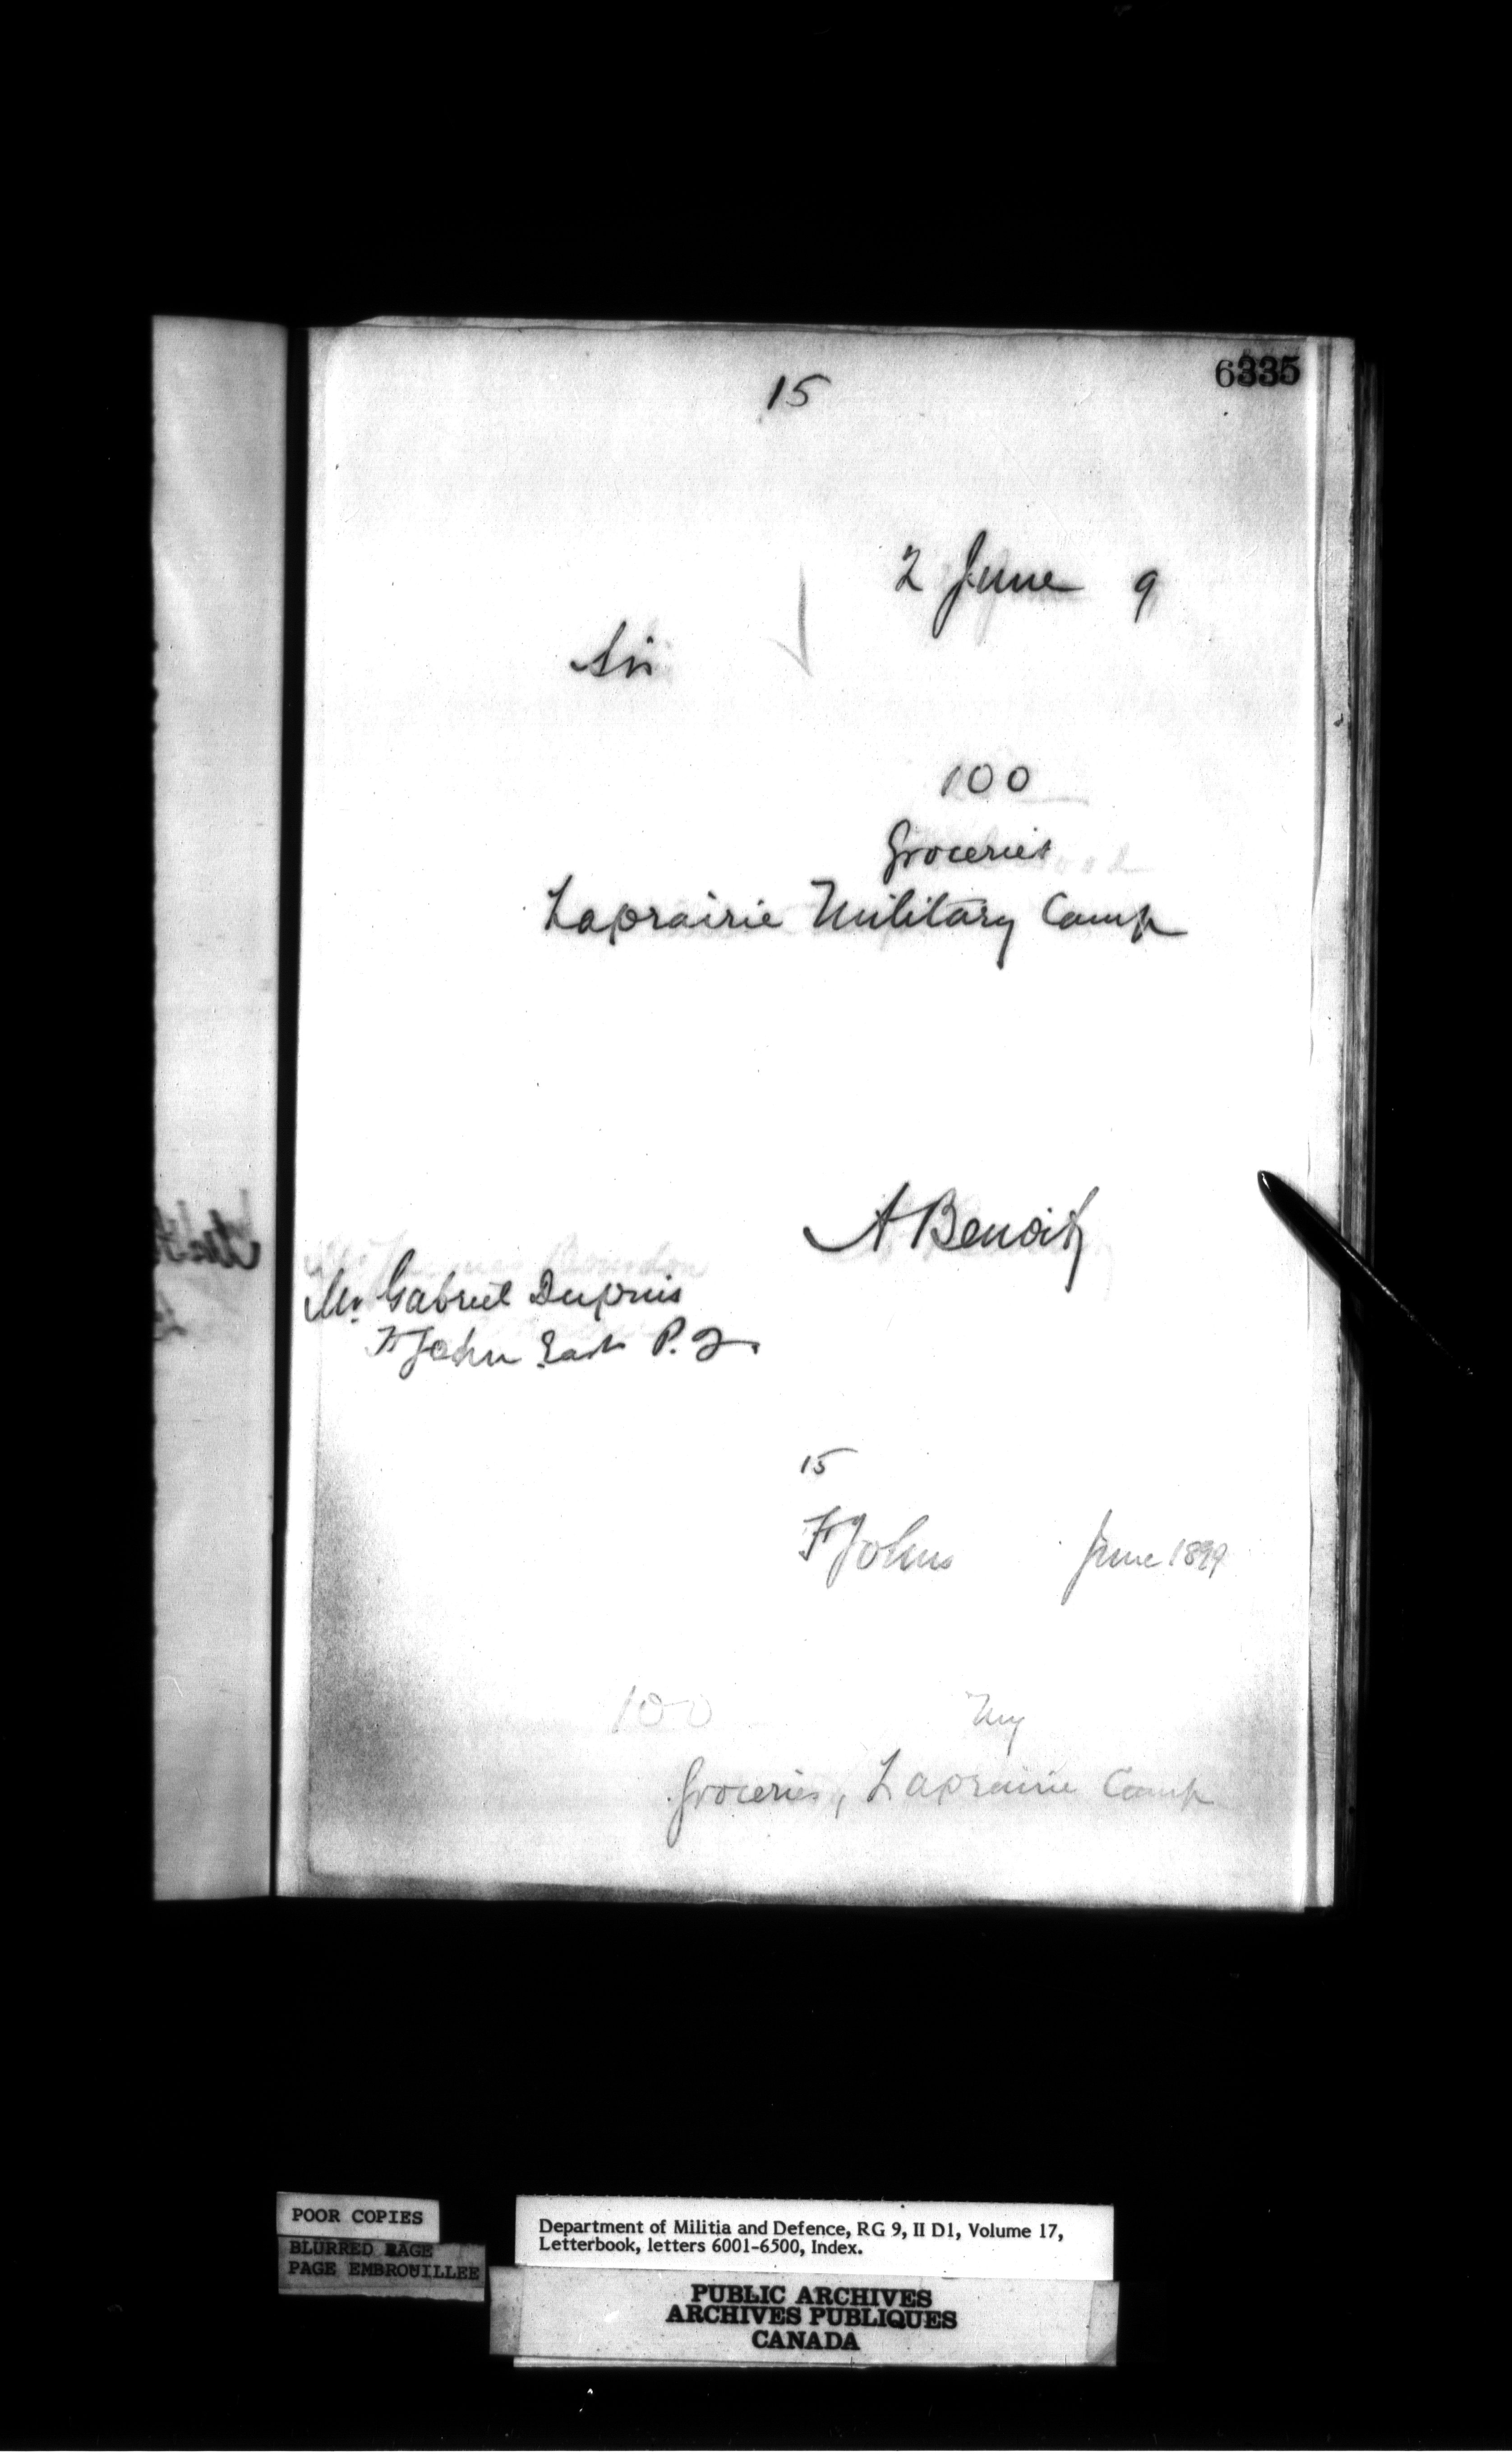 6335
15
2 June 9
Sir
100
Groceries
Laprairie Military Camp
A Benoit
Mr. Gabriel Dupuis
St John East P. Q.
15
St Johns June 1899
100 My
Groceries, Laprairie Camp
POOR COPIES
BLURRED PAGE
PAGE EMBROUILLEE
Department of Militia and Defence, RG 9, II D1, Volume 17,
Letterbook, letters 6001-6500, Index.
PUBLIC ARCHIVES
ARCHIVES PUBLIQUES
CANADA